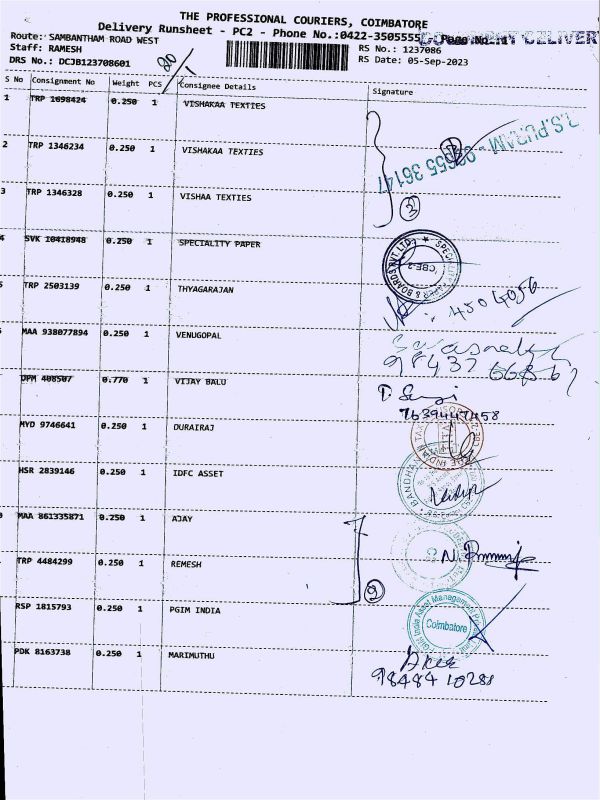 THE PROFESSIONAL COURIERS, COIMBATORE
Delivery Runsheet - PC2 - Phone No.:0422-3505555
Route: SAMBANTHAM ROAD WEST
RS No.: 1237086
Staff: RAMESH
RS Date: 05-Sep-2023
DRS No.: DCJB123708601
S No Consignment No Weight PCS Consignee Details Signature
1 TRP 1698424 0.250 1 VISHAKAA TEXTIES
2 TRP 1346234 0.250 1 VISHAKAA TEXTIES
3 TRP 1346328 0.250 1 VISHAA TEXTIES
3
4 SVK 10418948 0.250 1 SPECIALITY PAPER
CBE-2
5 TRP 2503139 0.250 1 THYAGARAJAN
4504056
MAA 938077894 0.250 1 VENUGOPAL
98437
DPM 408507 0.770 1 VIJAY BALU
7639447458
MYD 9746641 0.250 1 DURAIRAJ
HSR 2839146 0.250 1 IDFC ASSET
BANDHAN
MAA 861335871 0.250 1 AJAY
TRP 4484299 0.250 1 REMESH
2
RSP 1815793 0.250 1 PGIM INDIA
PGIM India Asset Management
Coimbatore
PDK 8163738 0.250 1 MARIMUTHU
98484 10288